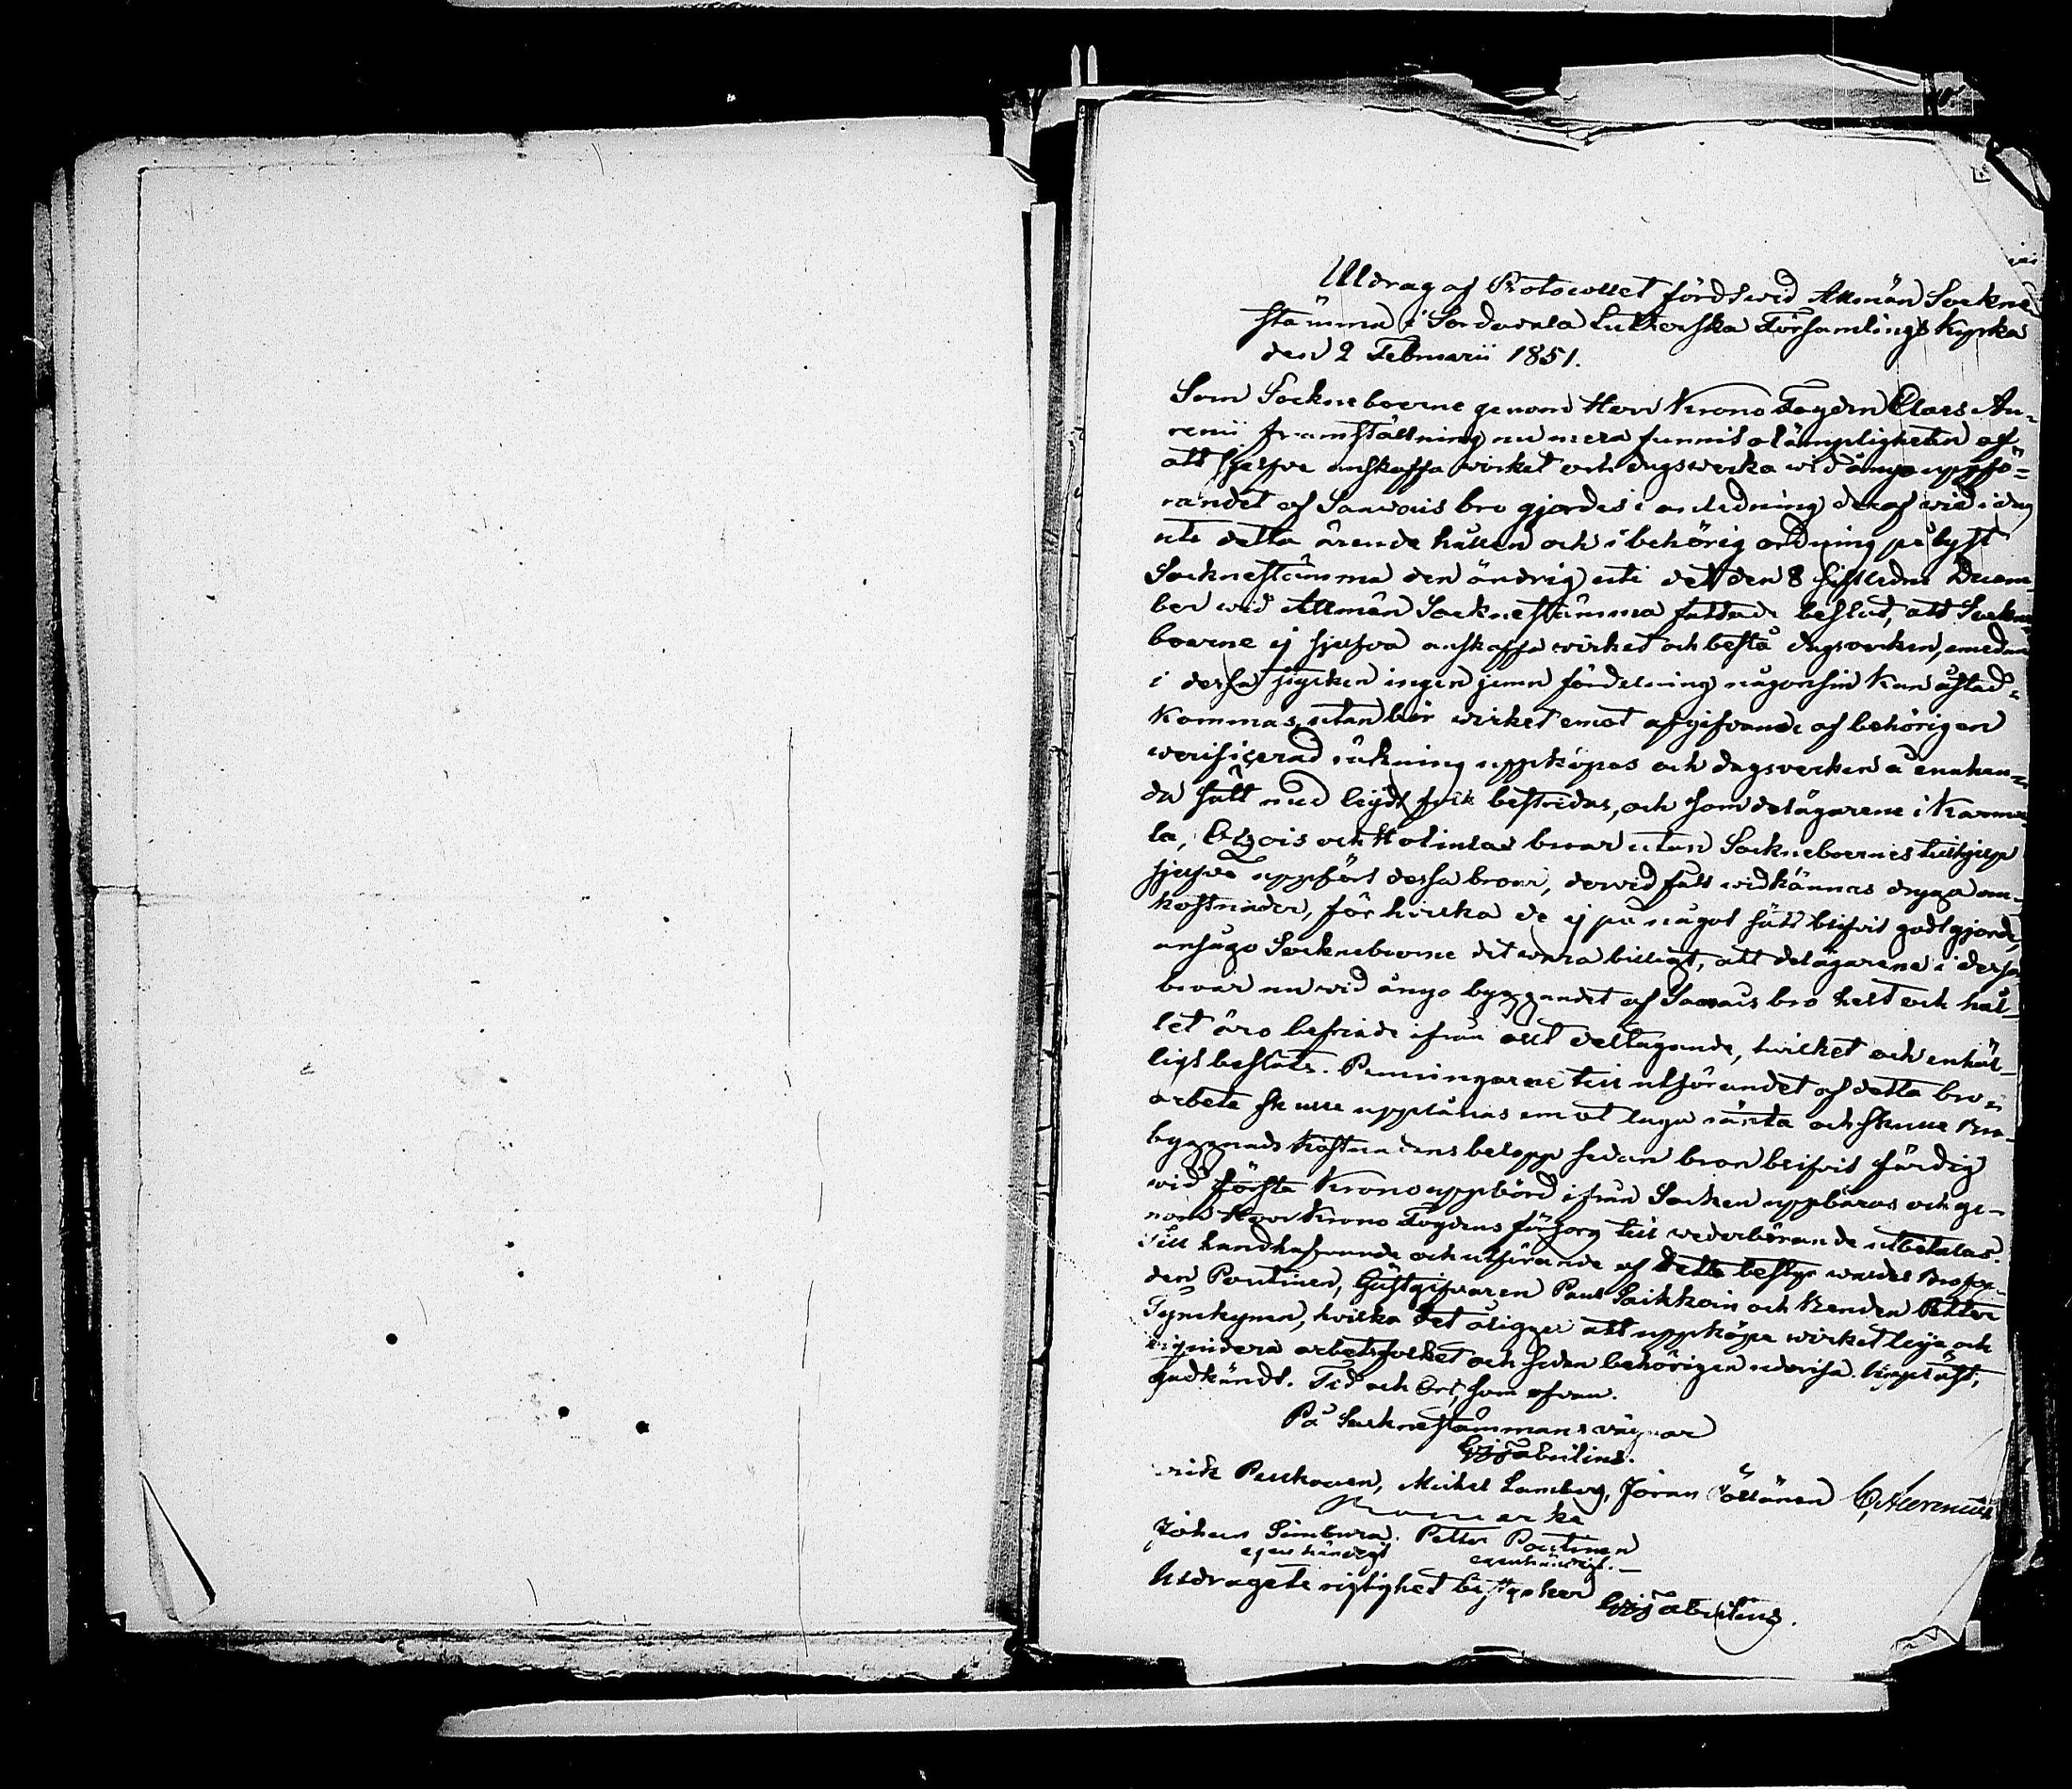 Utdrag af Protocollet fördt wid Allmän Sockne
stämma i Sordavala Lutherska Församlings Kyrka
den 2 Februarii 1851.
Som Sockneboerne genom Herr Krono Fogden Claes Au-
renii framställning nu mera funnit olämpligheten af
att sjelfve anskaffa wirket och dagswerka wid ånyo uppfö-
randet af bro gjordes i anledning deraf wid i dag
uti detta ärende hållen och i behörig ordning pålyst
Socknestämma den ändring uti det den 8 sistledne Decem-
ber wid Allmän Socknestämma fattade beslut, att Sockne-
boerne ej sjelfva anskaffa wirket och bestå dagsverken, emedan
i dessa stycken ingen jemn fördelning någonsin kan åstad-
kommas, utan bör wirket emot afgifvande af behörigen
werificerad räkning uppköpas och dagsverken å enahan-
da sätt med leijdt folk bestridas, och som delägarene i
la, och broar utan Sockneboernes tillhjelp
sjelfve uppfört dessa broar, dervid fått widkännas dryga om-
kostnader, för hvilka de ej på något sätt blifvit godtgjorde,
ansågo Sockneboerne det wara billigt, att delägarene i dessa
broar nu wid ånyo byggandet af bro helt och hål-
let äro befriade ifrån allt deltagande, hvilket och enhäl-
ligt beslöts. Penningarne till utförandet af detta bro-
arbete skulle upplånas emot laga ränta och skulle Bro-
byggnads kostnadens belopp sedan bron blifvit färdig
wid första Krono uppbörd ifrån Socken uppbäras och ge-
nom Herr Krono Fogdens försorg till wederbörande utbetalas.
Till handhafvande och utförande af detta bestyr waldes Brofog-
den Poutinen, Gästgifvaren Paul Paikkoin och Bonden Petter
hvilka det åligger att uppköpa wirket leija och
arbetsfolket och sedan behörigen redovisa. Uppläst,
godkändt. Tid och Ort, som ofvan.
På Socknestämmans vägnar
Fabritius.
Erik Pelkonen, Michel Lamberg, Jöran Pöllänen C, Aurenius
Bomärke
Johan Simbura. Petter Poutinen
egenhändigt egenhändigt. —
Utdragets rigtighet bestyrker
Fabritius.